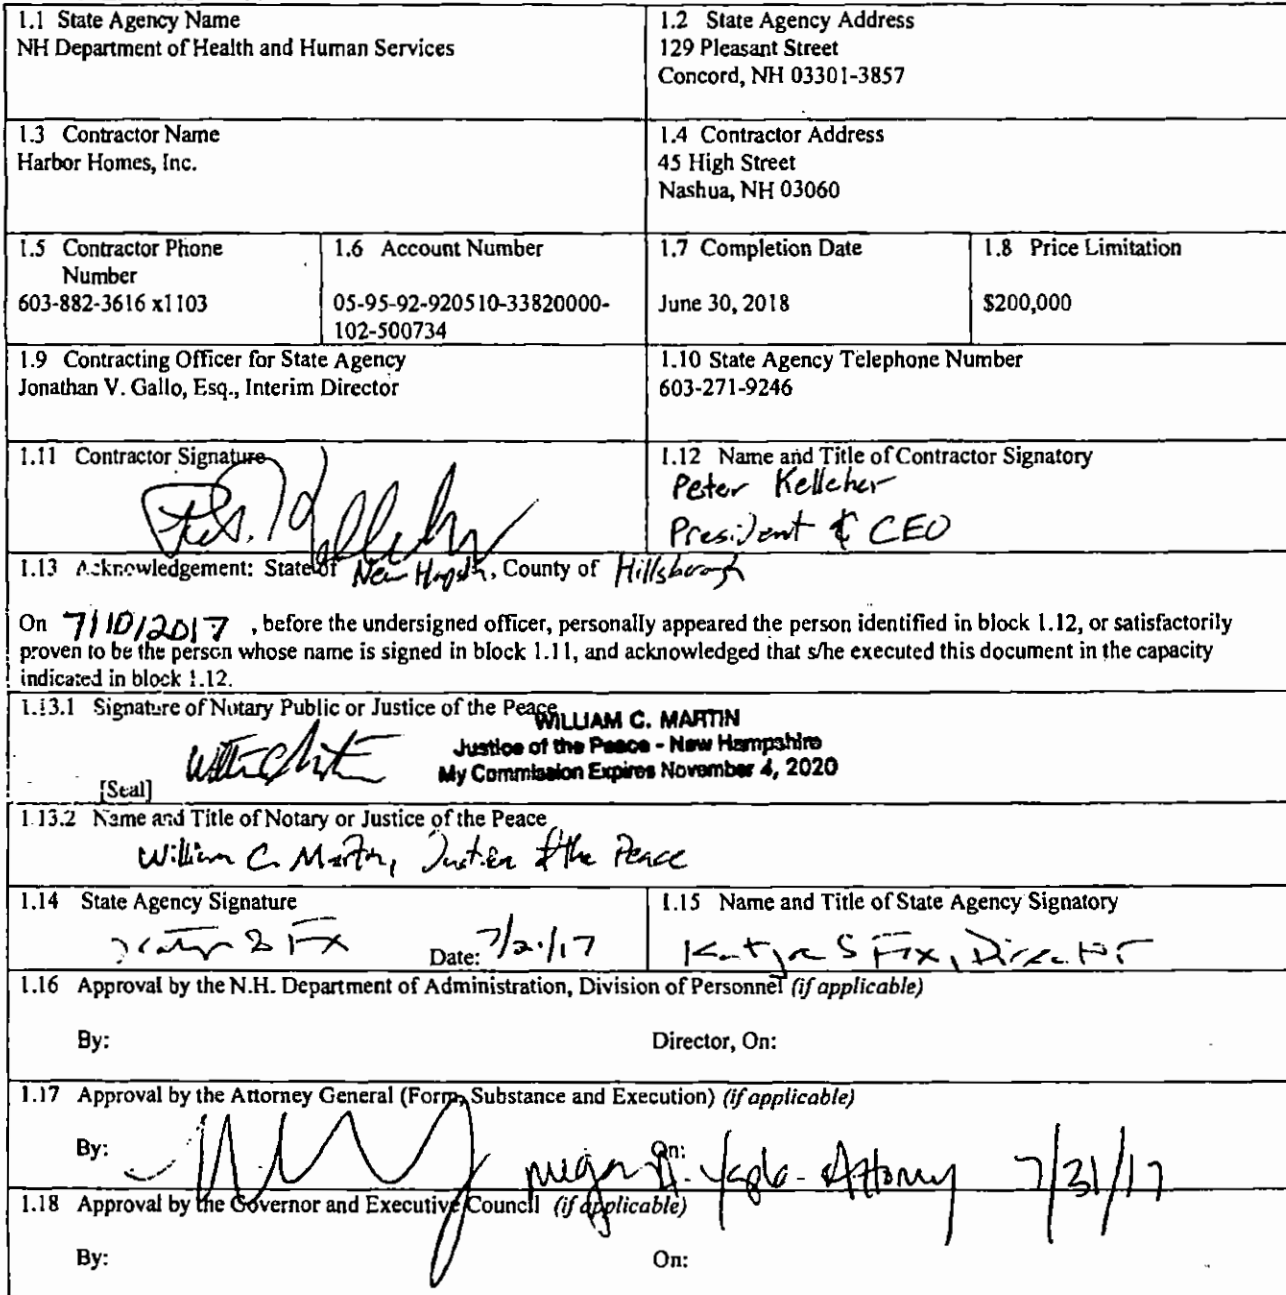 1.1 State Agency Name
NH Department of Health and Human Services
1.2 State Agency Address
129 Pleasant Street
Concord, NH 03301-3857
1.3 Contractor Name
Harbor Homes, Inc.
1.4 Contractor Address
45 High Street
Nashua, NH 03060
1.5 Contractor Phone
Number
603-882-3616 x1103
1.6 Account Number
05-95-92-920510-33820000-
102-500734
1.7 Completion Date
June 30, 2018
1.8 Price Limitation
$200,000
1.9 Contracting Officer for State Agency
Jonathan V. Gallo, Esq., Interim Director
1.10 State Agency Telephone Number
603-271-9246
1.11 Contractor Signature
1.12 Name and Title of Contractor Signatory
Peter Kelleher
President & CEO
1.13 Acknowledgement: State of New Hampshire, County of Hillsborough
On 7/10/2017, before the undersigned officer, personally appeared the person identified in block 1.12, or satisfactorily
proven to be the person whose name is signed in block 1.11, and acknowledged that s/he executed this document in the capacity
indicated in block 1.12.
1.13.1 Signature of Notary Public or Justice of the Peace
WILLIAM C. MARTIN
Justice of the Peace - New Hampshire
My Commission Expires November 4, 2020
[Seal]
1.13.2 Name and Title of Notary or Justice of the Peace
William C. Martin, Justice of the Peace
1.14 State Agency Signature
Date: 7/21/17
1.15 Name and Title of State Agency Signatory
Katja S Fox, Director
1.16 Approval by the N.H. Department of Administration, Division of Personnel (if applicable)
By:
Director, On:
1.17 Approval by the Attorney General (Form, Substance and Execution) (if applicable)
By:
On:
Megan A. Yaple - Attorney 7/31/17
1.18 Approval by the Governor and Executive Council (if applicable)
By:
On: